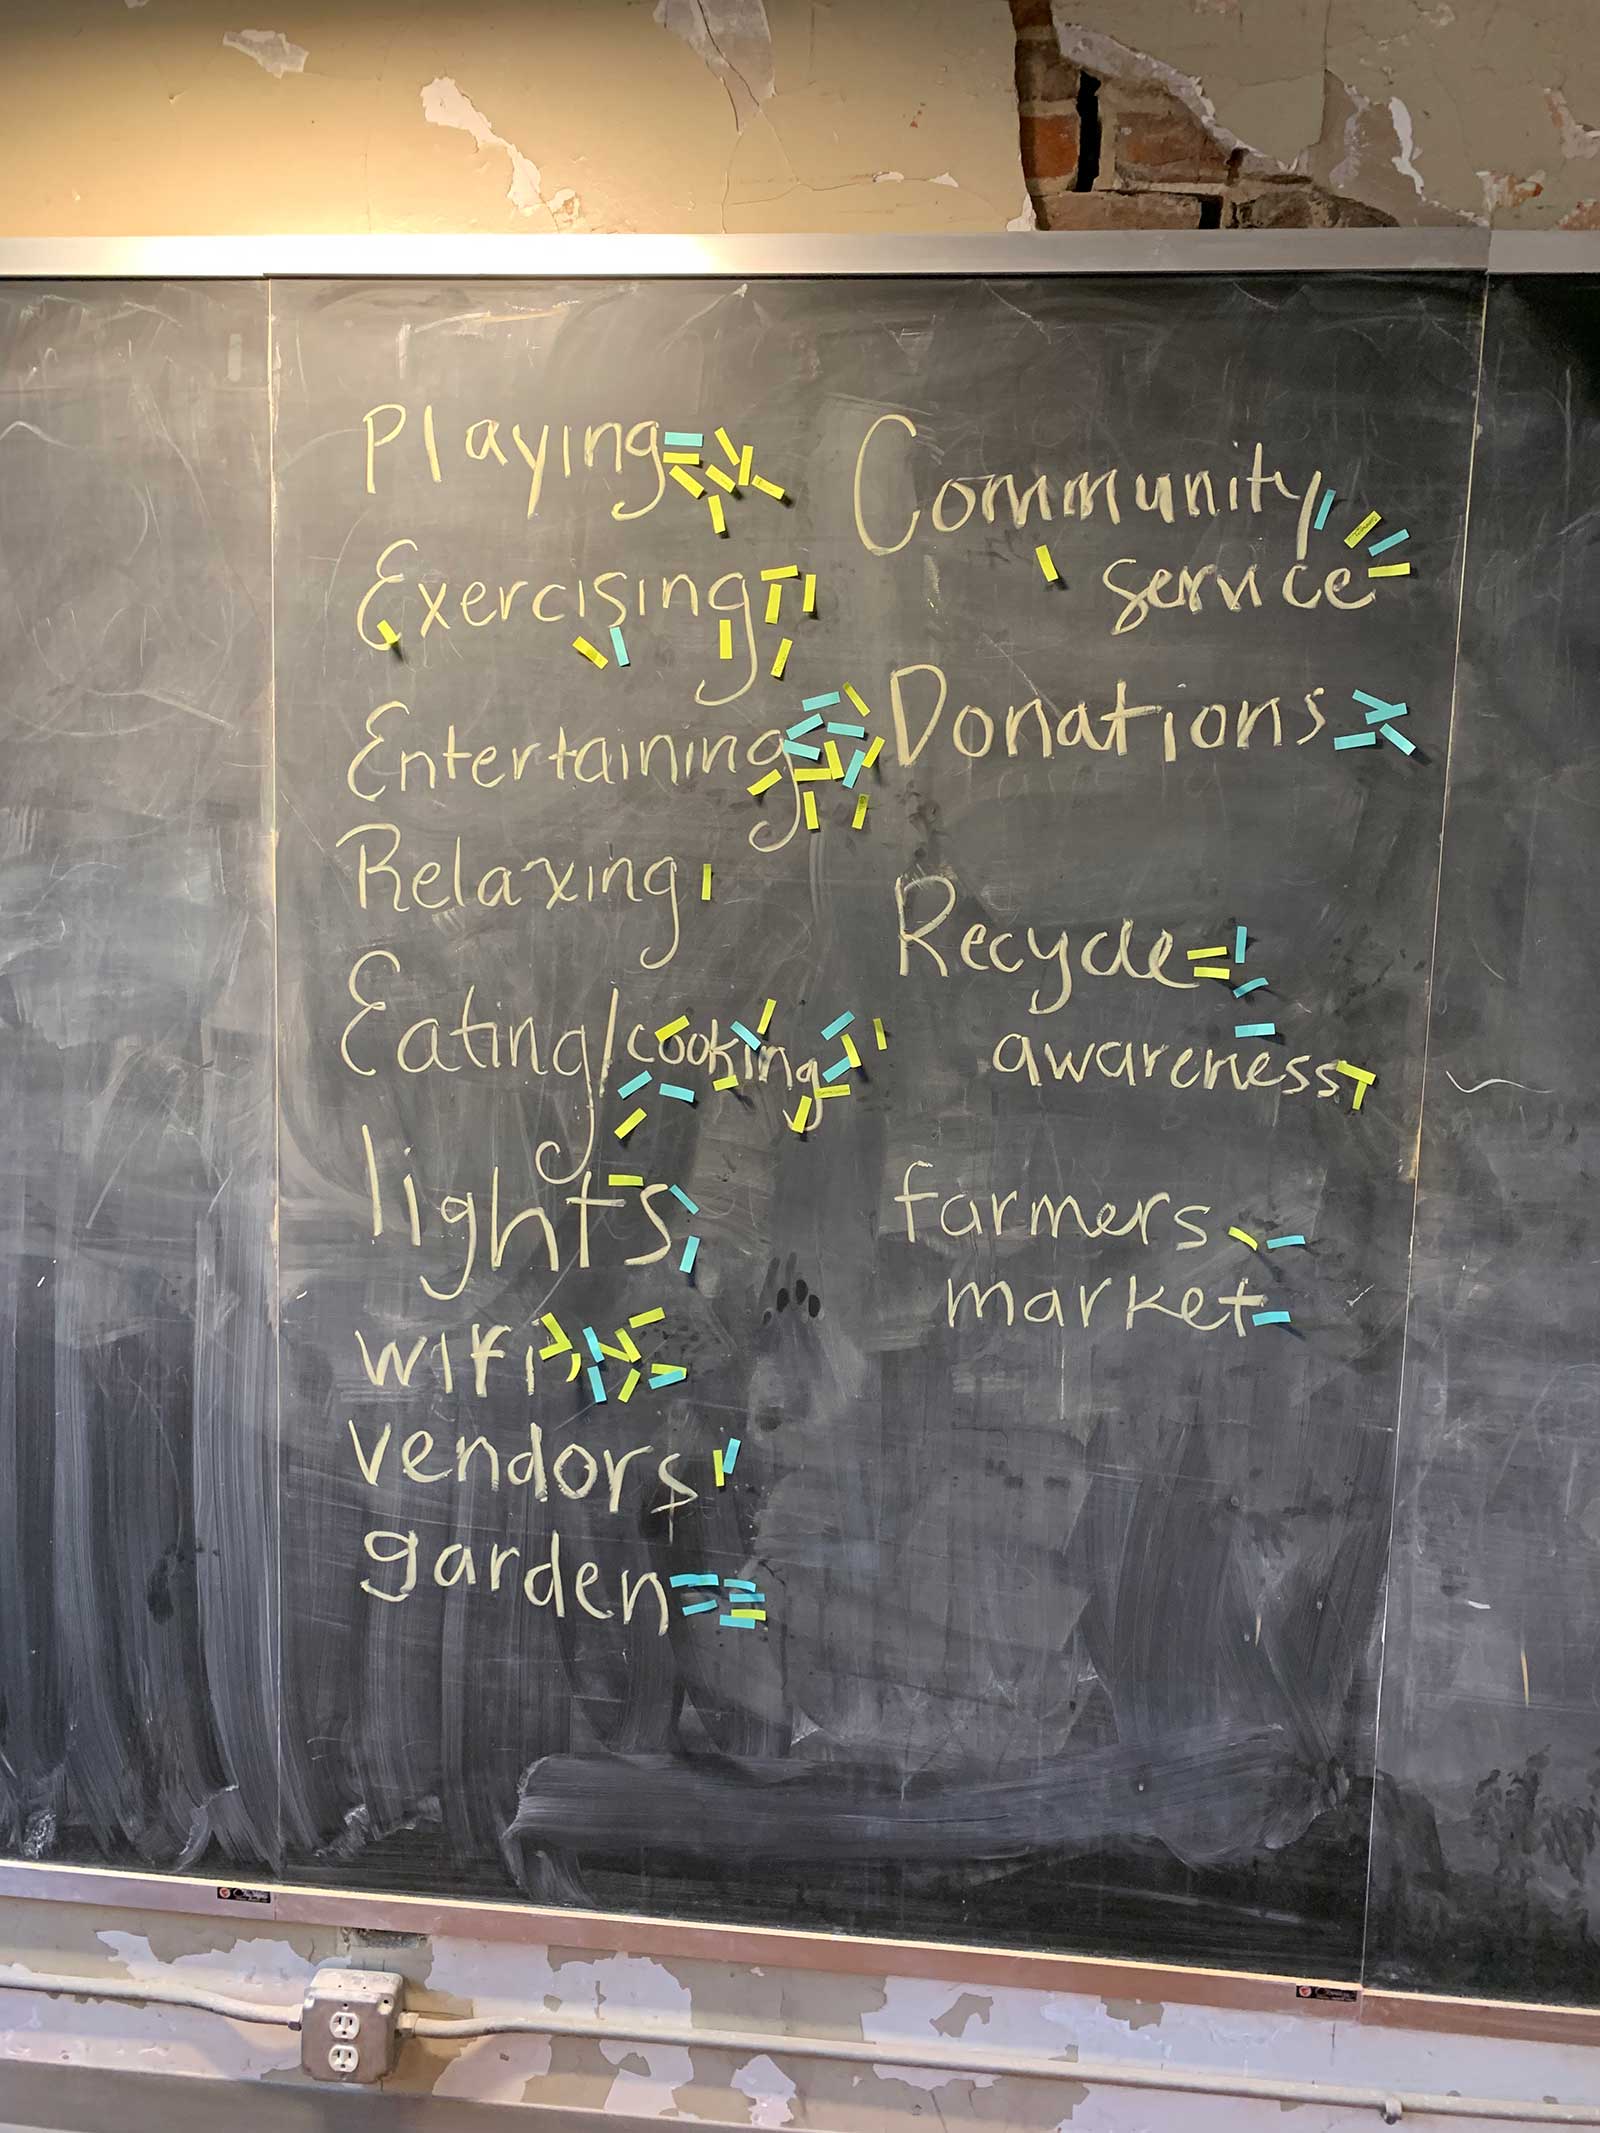 Playing
Exercising
Entertaining
Relaxing
Eating/cooking
lights
wifi
vendors
garden
Community
service
Donations
Recycle
awareness
farmers
market